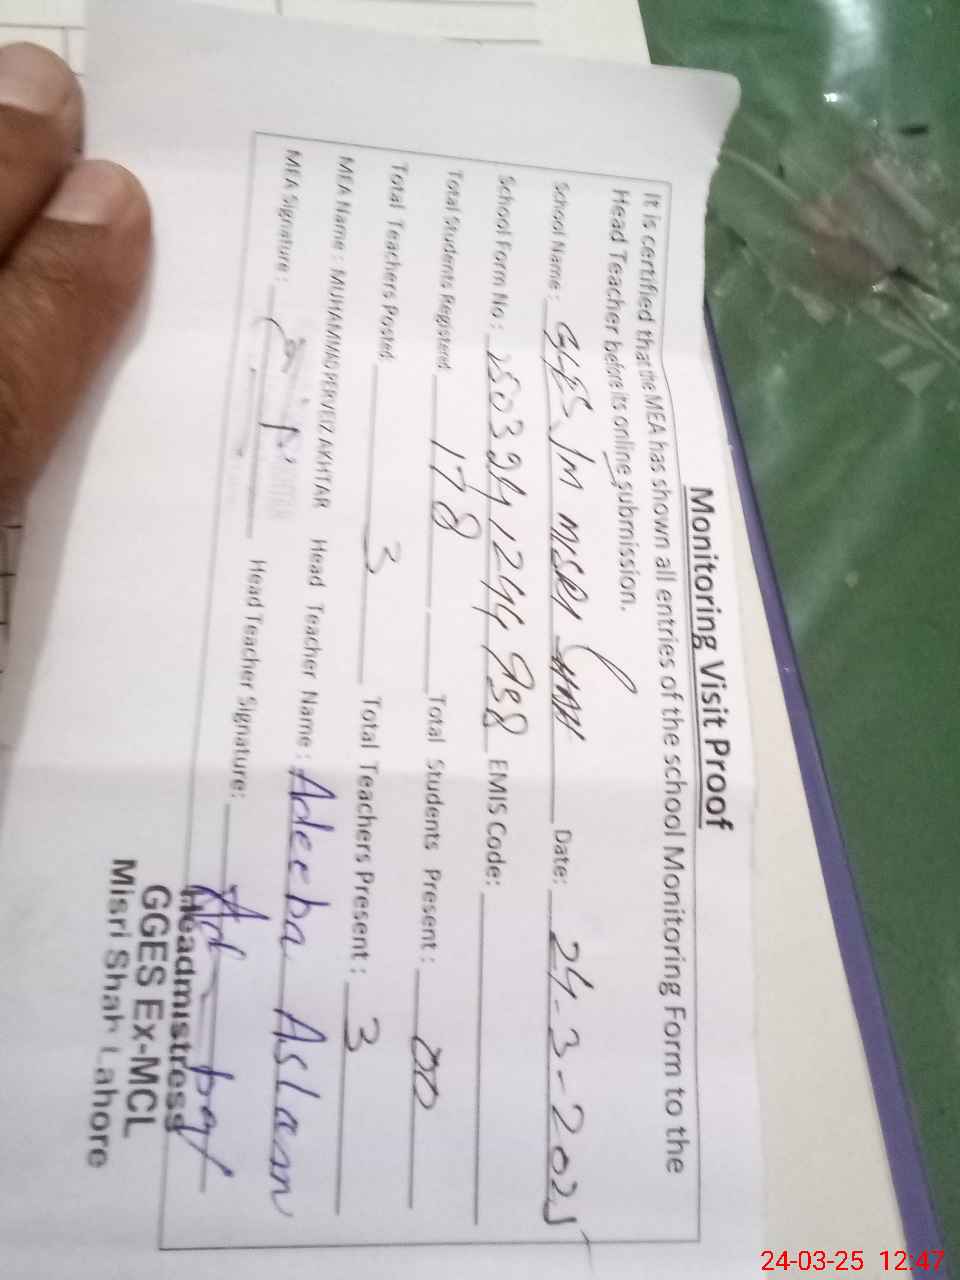 Monitoring Visit Proof
It is certified that the MEA has shown all entries of the school Monitoring Form to the
Head Teacher before its online submission.
School Name: Misri Shah Date: 24-3-2025
School Form No: 2503241244958 EMIS Code:
Total Students Registered 178 Total Students Present: 00
Total Teachers Posted 3 Total Teachers Present: 3
MEA Name: MUHAMMAD PERVEIZ AKHTAR Head Teacher Name: Adeeba Aslam
MEA Signature: Head Teacher Signature:
Headmistress
GGES Ex-MCL
Misri Shah Lahore
24-03-25 12:47